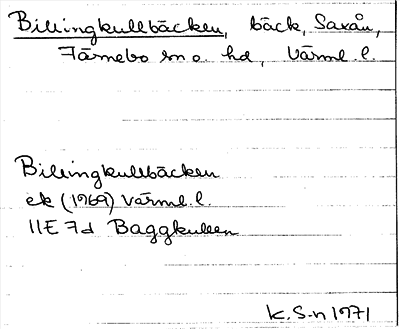 Billingkullbäcken, bäck, Saxån,
Färnebo sn o. hd, Värml. l.
Billingkullbäcken
ek (1969) Värml. l.
11E 7d Baggkullen
K. S-n 1971